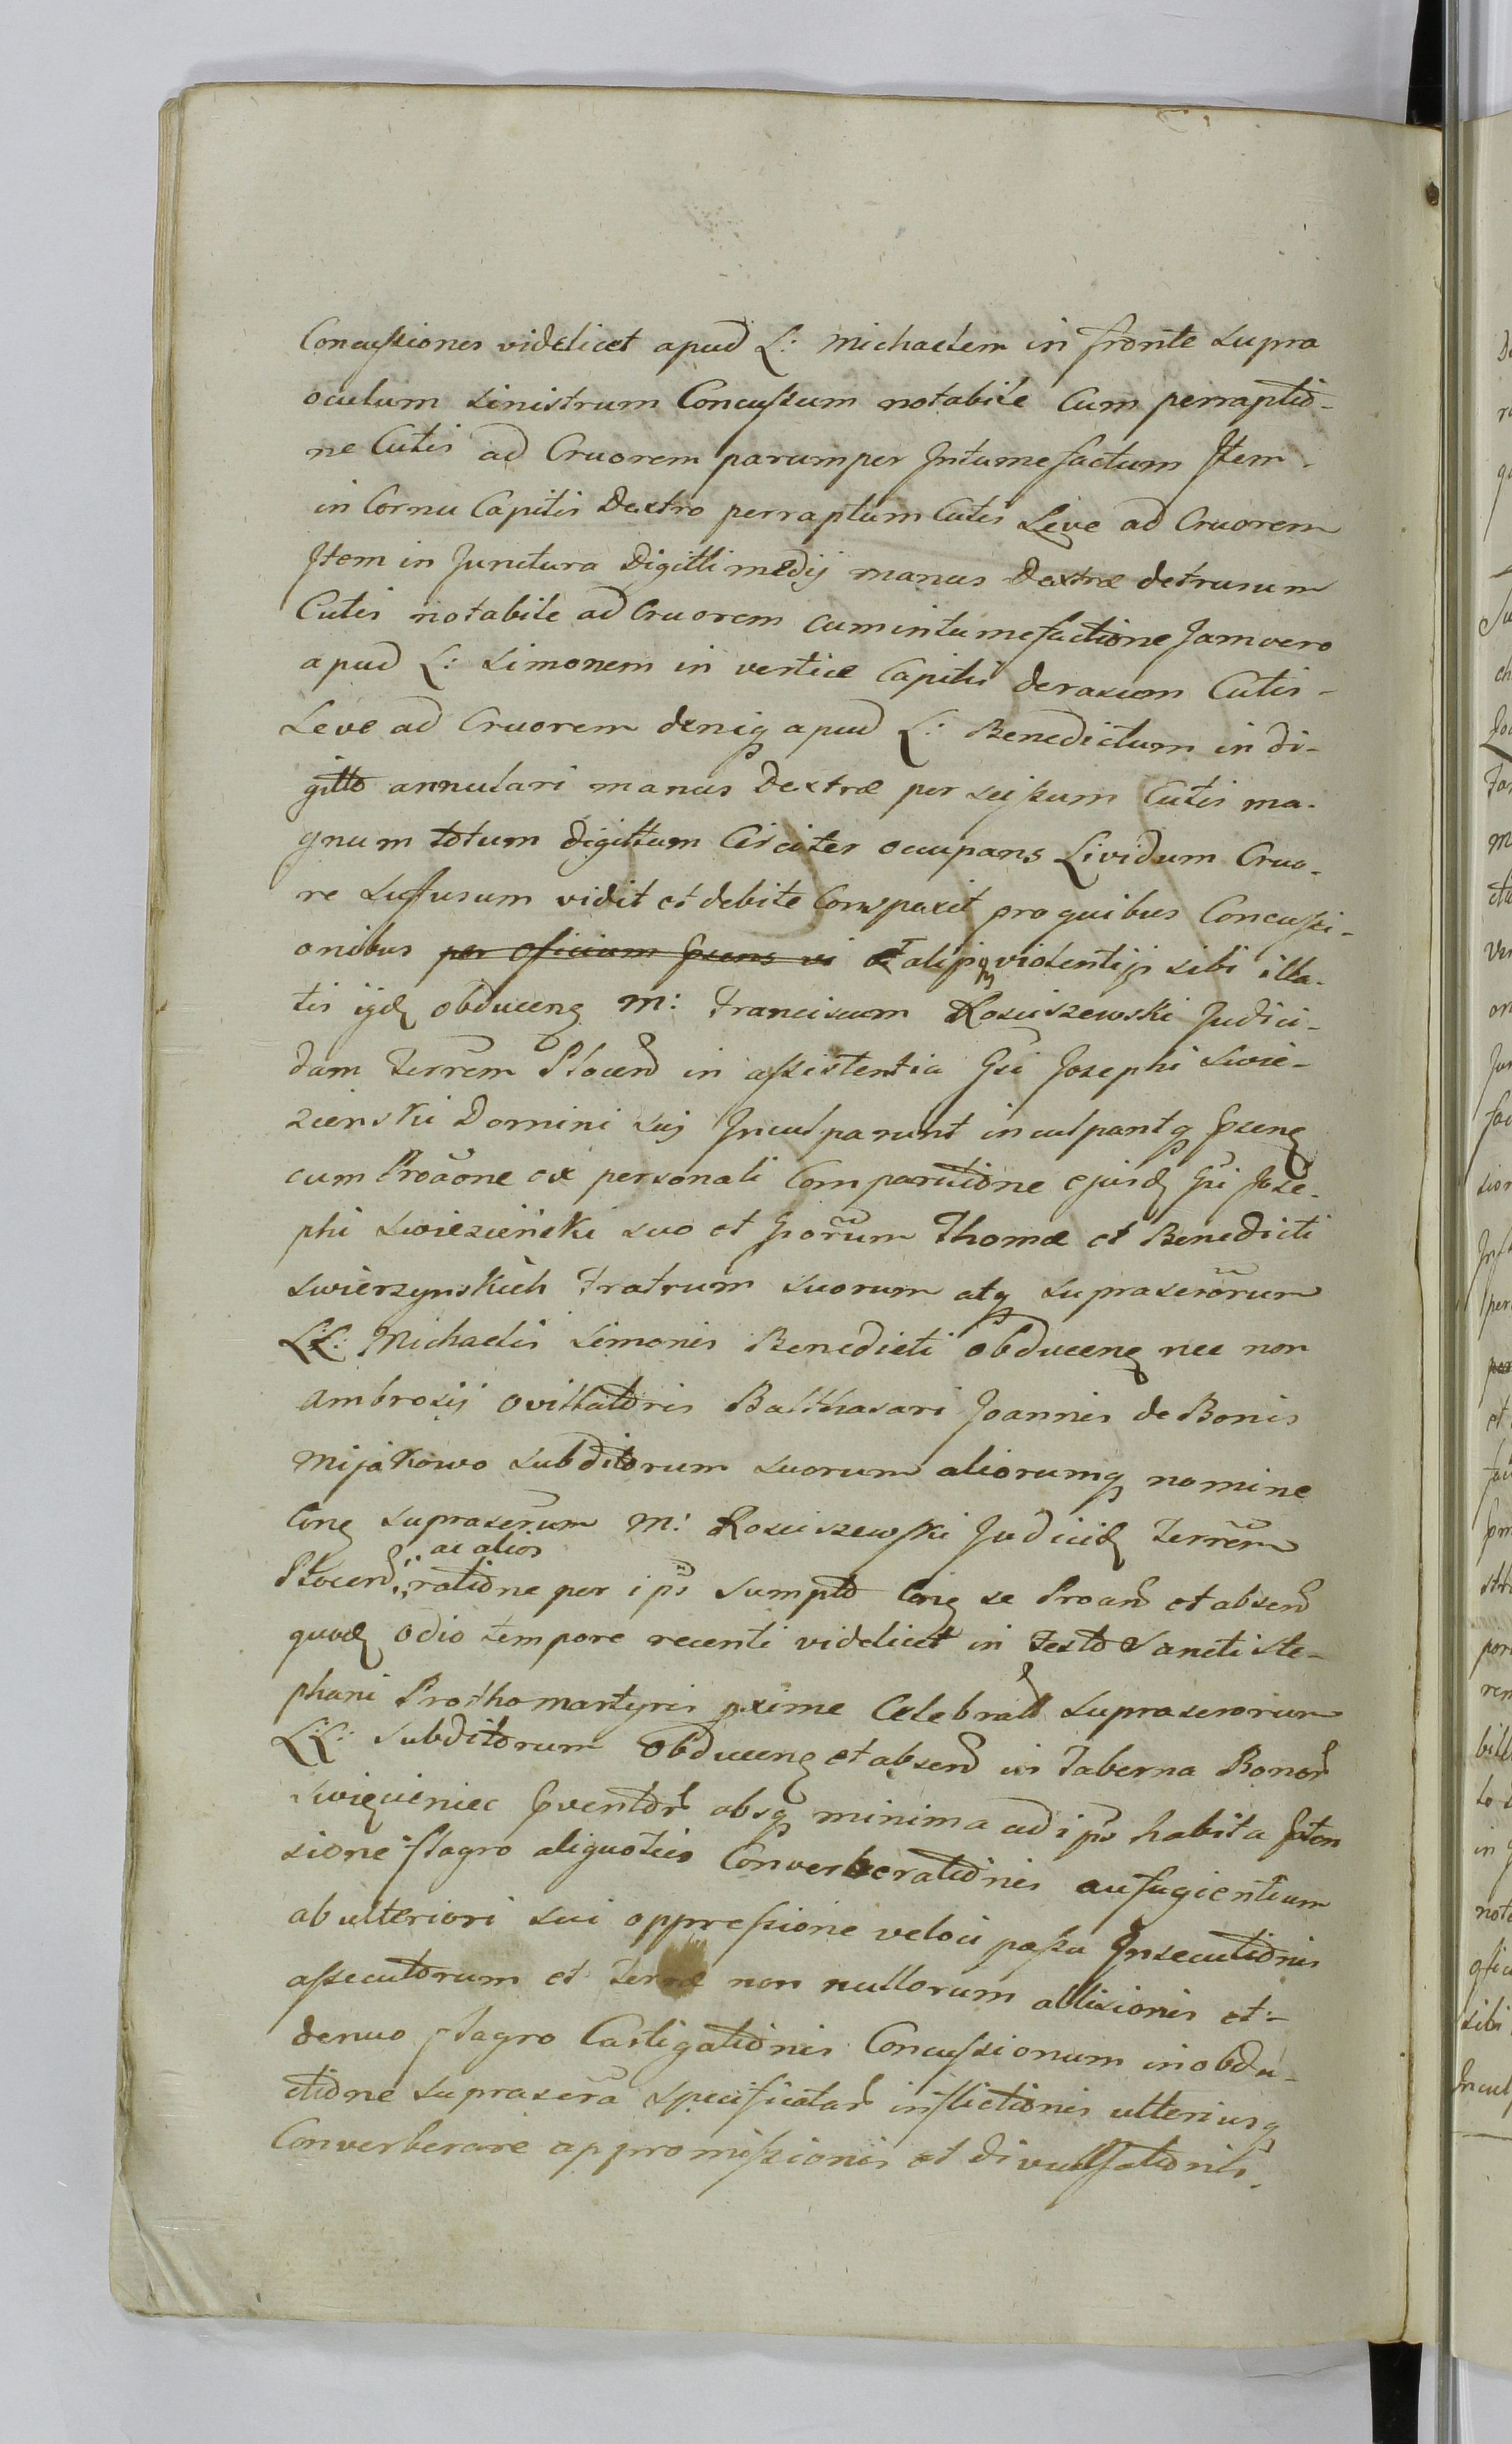 Concussiones videlicet apud L: Michaelem in fronte supra
oculum sinistrum Concussum notabile Cum perraptio-
ne Cutis ad Cruorem parumper Intumefactum Item
in Cornu Capitis Dextro perraptum Cutis Leve ad Cruorem
Item in Junctura Digitti medij manus Dextræ detrusum
Cutis notabile ad Cruorem cum intumefactione Jam vero
apud L: Simonem in vertice Capitis derasum Cutis-
Leve ad Cruorem deniq apud L: Benedictum in di-
gitto annulari manus Dextræ per scissum Cutis ma-
gnum totum digittum Circiter occupans Lividum Cruo-
re suffusum vidit et debite Conspexit pro quibus Concussi-
onibus per officium præns vi et alijsq violentijs sibi illa-
tis ijd obducens M: Franciscum Rosciszewski Judici-
dam Terrem Plocen in assistentia Gsi Josephi Swie-
zienski Domini sui Inculparunt inculpantq præns
cum Proaone ex personali Comparitione ejusd Gsi Jose-
phi Swiezieński suo et Gsorum Thomæ et Benedicti
Swierzynskich Fratrum suorum atq suprascrorum
LL: Michaelis Simonis Benedicti obducens nec non
Ambrosij ovillatoris Balthasari Joannis de Bonis
Mijakowo subditorum suorum aliorumq nomine
Cong suprascrum M: Rosciszewski Judicid Terrem
ac alios
Plocen ratione per ips sumpto Cong se Proan et absen
quod odio tempore recenti videlicet in Festo Sancti Ste-
phani Prothomartyris pxime Celebrato suprascrorum
LL: Subditorum obducens et absen in Taberna Bonor
Swięcieniec pventor absq minima ad ips habita pten
sione flagro aliquoties Converberationis aufugientium
ab ulteriori sui oppressione veloci passu Insecutionis
assecutorum et Terræ non nullorum allisionis et-
denuo flagro Castigationis Concussionum in obdu-
ctione suprascra specificatar inflictionis ulteriusq
Converberare appromissionis et divulgationis